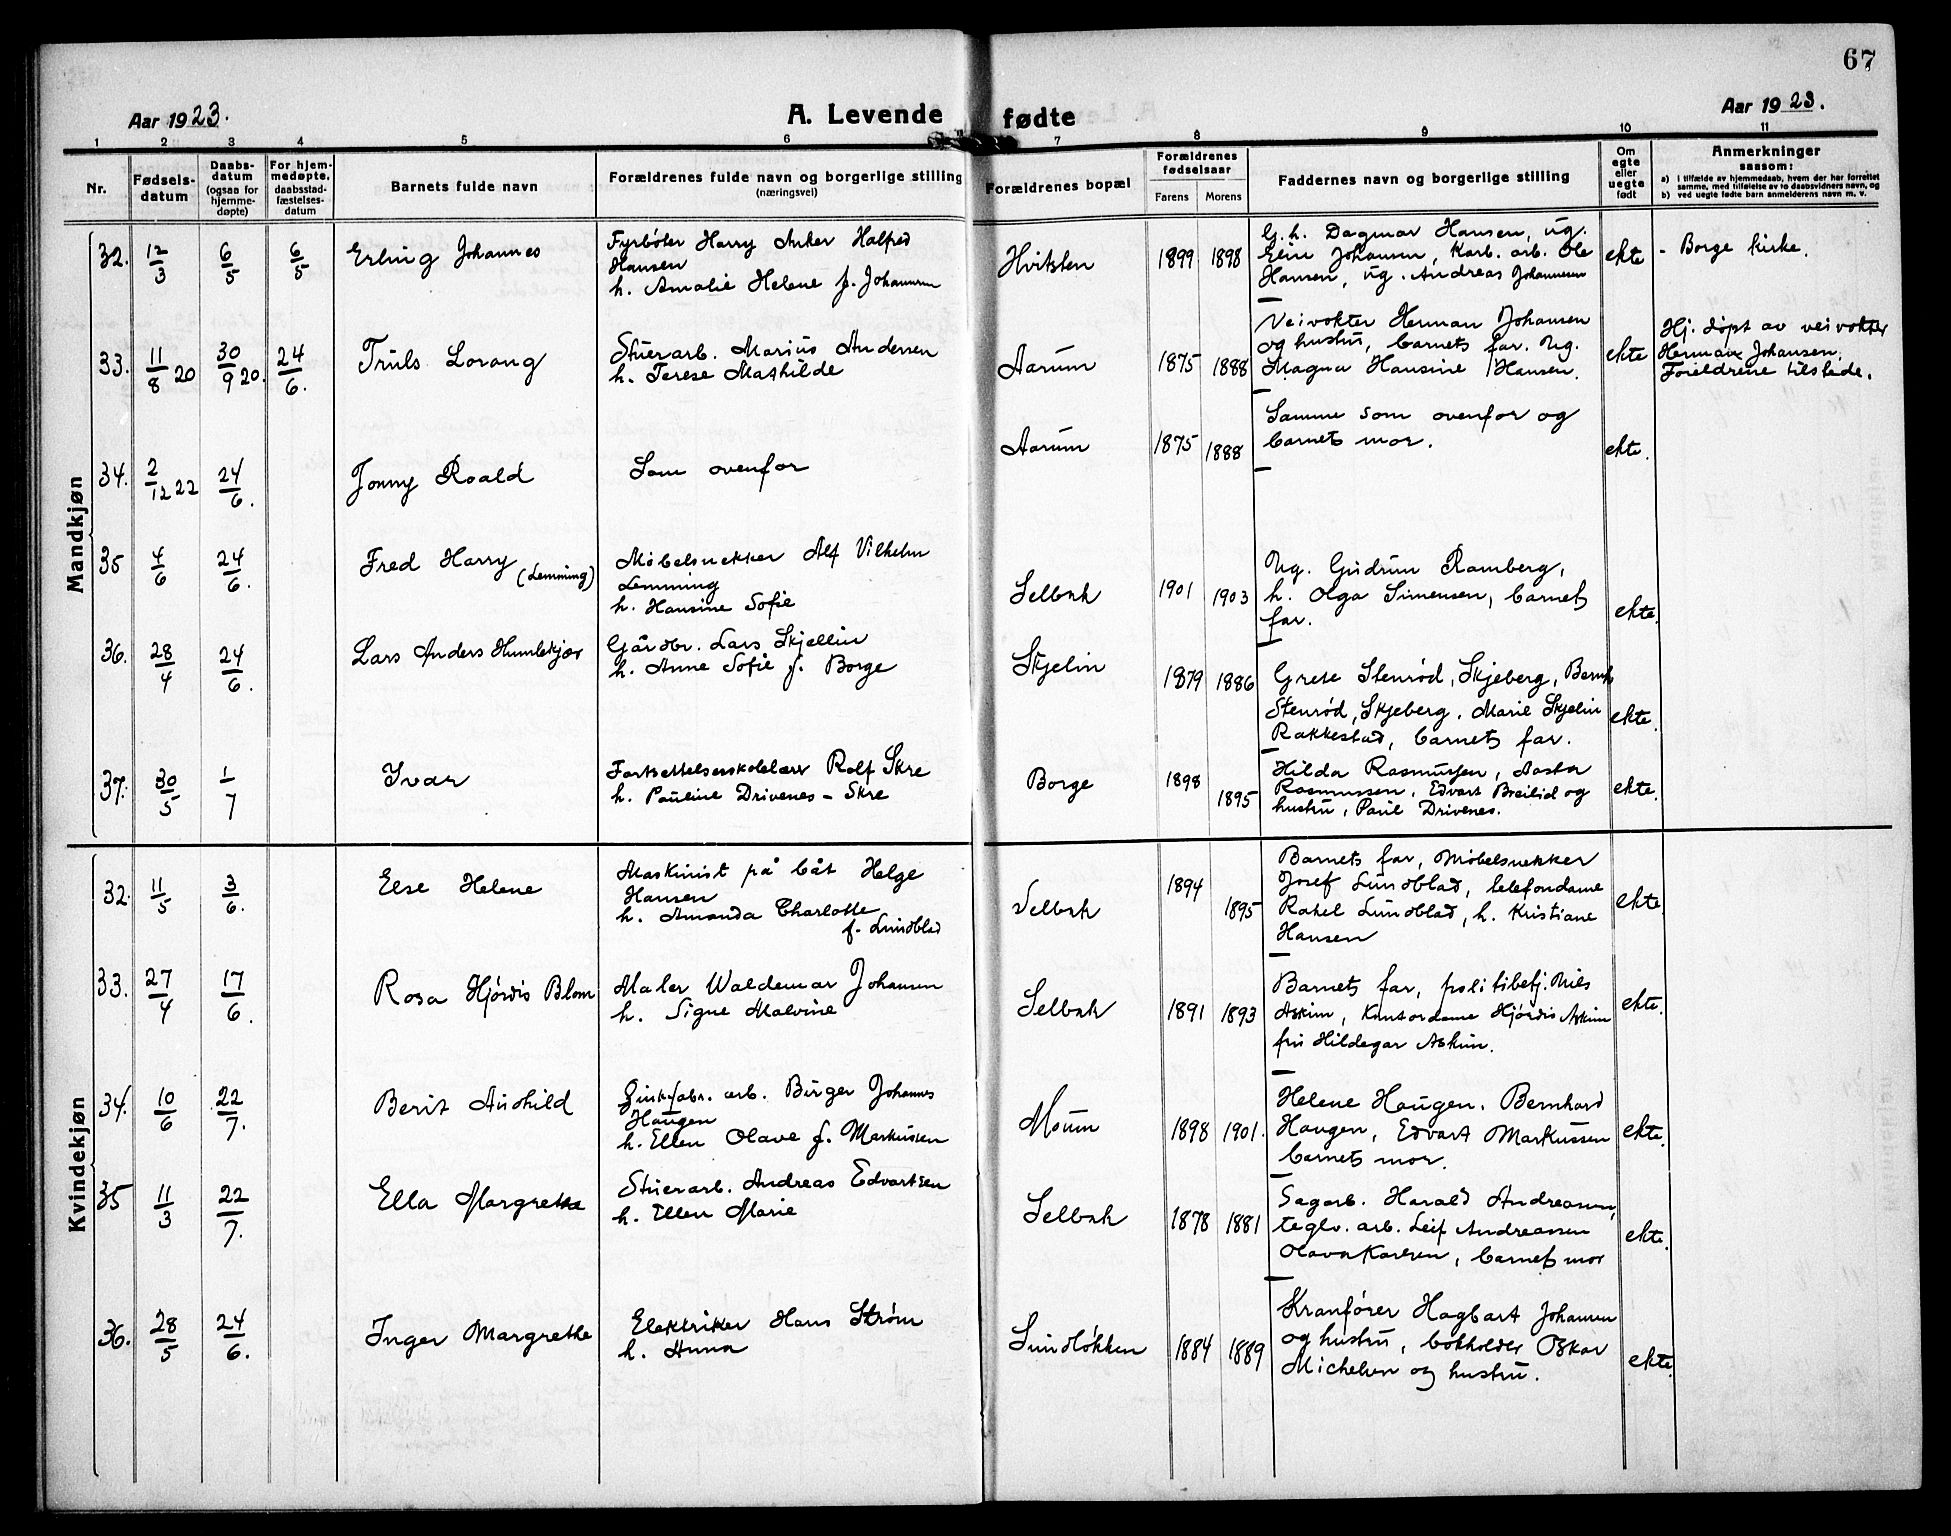 67
Aar 1923.
A. Levende fødte
Aar 1923.
1 2 3 4 5 6 7 8 9 10 11
Nr.
Fødsels-
datum
Daabs-
datum
(ogsaa for
hjemme-
døpte)
For hjem-
medøpte.
daabsstad-
fæstelses-
datum
Barnets fulde navn
Forældrenes fulde navn og borgerlige stilling
(næringsvei)
Forældrenes bopæl
Forældrenes
fødselsaar
Farens Morens
Faddernes navn og borgerlige stilling
Om
egte
eller
uegte
født
Anmerkninger
saasom:
a) I tilfælde av hjemmedaab, hvem der har forrettet
samme, med tilføielse av to daabsvidners navn, og
b) ved uegte fødte barn anmelderens navn m. v.
Mandkjøn
32. 12/3 6/5 6/5 Erling Johannes
Fyrbøter Harry Anker Halfred
Hansen
h. Amalie Helene f. Johannesen
Hvitsten 1899 1898
G. h. Dagmar Hansen, ug.
Johansen, Karb. arb. Ole
Hansen, ug. Andreas Johannesen
ekte - Borge kirke.
33. 11/8 20 30/9 20. 24/6. Truls Lorang
Stuerarb. Marius Andersen
h. Terese Mathilde
Aarum 1875 1888
Veivokter Herman Johansen
og hustru, barnets far. Ug.
Magna Hansine Hansen.
ekte
Hj. døpt av veivokter
Herman Johansen.
Foreldrene tilstede.
34. 2/12 22 24/6. Jonny Roald
Som ovenfor
Aarum 1875 1888
Samme som ovenfor og
barnets mor.
ekte.
35 4/6 24/6. Fred Harry (Lemming)
Møbelsnekker Alf Vilhelm
Lemming
h. Hansine Sofie
Selbak 1901 1903
Ug. Gudrun Ramberg,
h. Olga Simensen, barnets
far.
ekte.
36. 28/4 24/6. Lars Anders Humlekjær
Gårdbr. Lars Skjellin
h. Anne Sofie f. Borge
Skjelin 1879 1886
Grete Stenrød, Skjeberg, Bernh
Stenrød, Skjeberg. Marie Skjelin
Rakkestad, barnets far.
ekte.
37. 30/5 1/7 Ivar
Fortsettelsesskolelærer Rolf Skre
h. Pauline Drivenes - Skre
Borge 1898 1895
Hilda Rasmussen, Aasta
Rasmussen, Edvart Breilid og
hustru, Paul Drivenes.
ekte.
Kvindekjøn
32. 11/5 3/6. Else Helene
Maskinist på båt Helge
Hansen
h. Amanda Charlotte
f. Lundblad
Selbak 1894 1895
Barnets far, møbelsnekker
Josef Lundblad, telefondame
Rakel Lundblad, h. Kristiane
Hansen
ekte.
33. 27/4 17/6. Rosa Hjørdis Blom
Maler Waldemar Johansen
h. Signe Malvine
Selbak 1891 1893
Barnets far, politibetj. Nils
Askim, Kontordame Hjørdis Askim
fru Hildegar Askim.
ekte.
34. 10/6 22/7. Berit Aushild
Zinkfabr. arb. Birger Johannes
Haugen
h. Ellen Olave f. Markussen
Moum 1898 1901.
Helene Haugen. Bernhard
Haugen, Edvart Markussen
barnets mor.
ekte.
35 11/3 22/7. Ella Margrethe
Stuerarb. Andreas Edvartsen
h. Ellen Marie
Selbak 1878 1881
Sagarb. Harald Andreassen,
teglv. arb. Leif Andreassen
Olava Karlsen, barnets mor
ekte.
36. 28/5 24/6. Inger Margrethe
Elektriker Hans Strøm
h. Anna
Sundløkken 1884 1889
Kranfører Hagbart Johansen
og hustru, bokholder Oskar
Michelsen og hustru.
ekte.